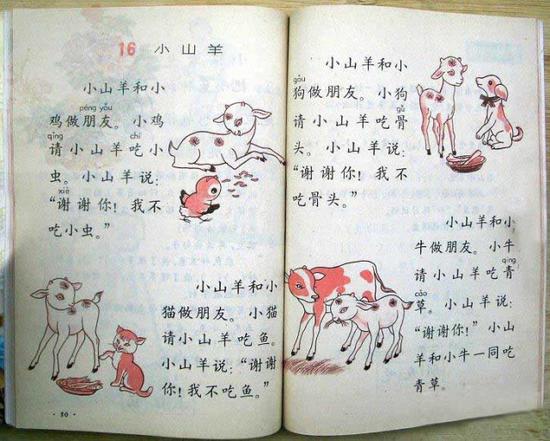 16 小山羊
小山羊和小
péng yǒu
鸡做朋友。小鸡
qǐng chī
请小山羊吃小
虫。小山羊说：
xiè
“谢谢你！我不
吃小虫。”
小山羊和小
猫做朋友。小猫
请小山羊吃鱼。
小山羊说：“谢谢
你！我不吃鱼。”
·50·
小山羊和小
gǒu
狗做朋友。小狗
gǔ
请小山羊吃骨
头。小山羊说：
“谢谢你！我不
吃骨头。”
小山羊和小
牛做朋友。小牛
qīng
请小山羊吃青
cǎo
草。小山羊说：
“谢谢你！”小山
羊和小牛一同吃
青草。